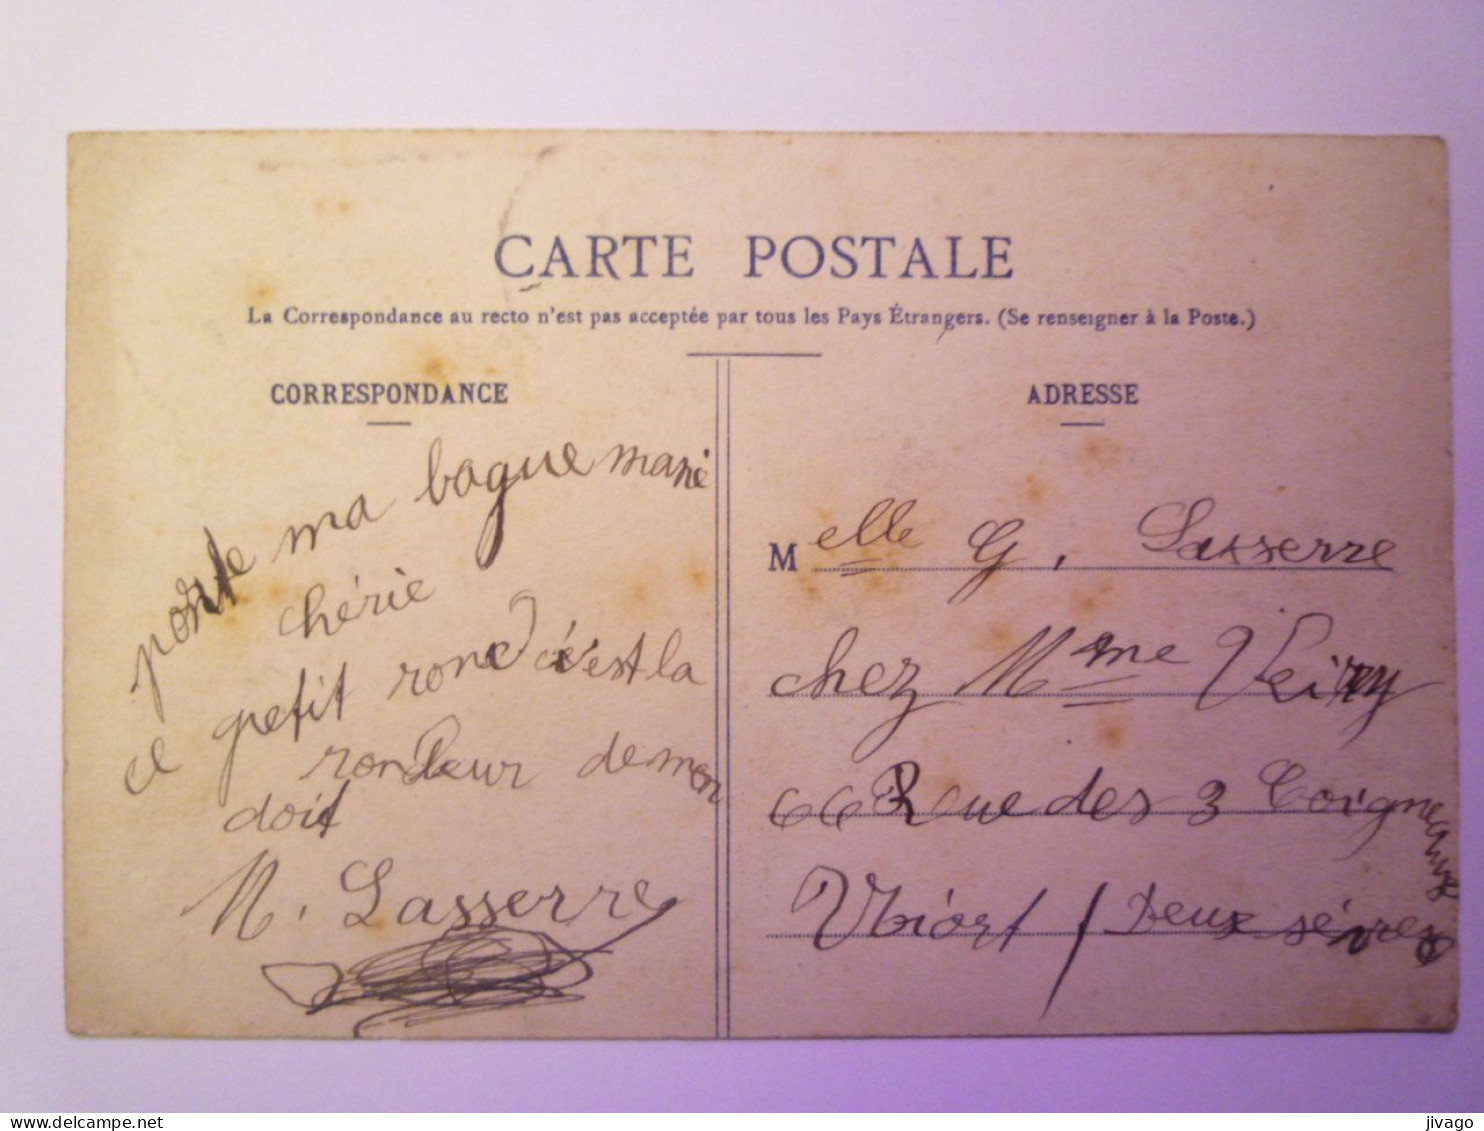 CARTE POSTALE
La Correspondance au recto n'est pas acceptée par tous les Pays Étrangers. (Se renseigner à la Poste.)
CORRESPONDANCE
porte ma bague
chérie
ce petit rond c'est la
rondeur de mon
doit
M. Lasserre
ADRESSE
Melle G. Lasserre
chez Mme
66 Rue des 3 Coigneaux
Niort / Deux sévres
jivago
delcampe.net